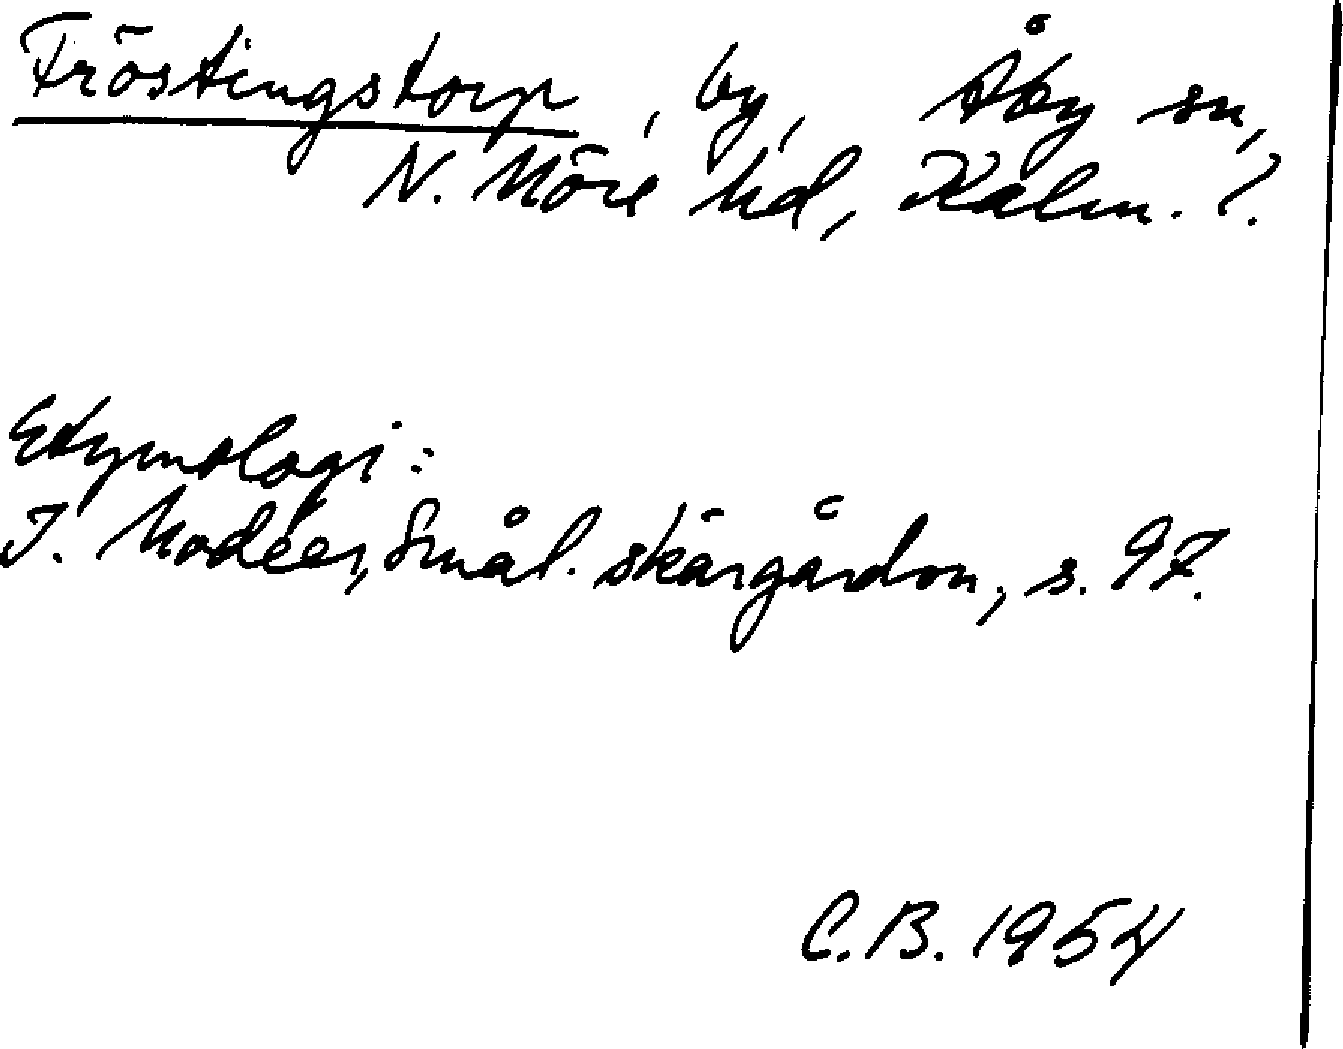 Fröstingstorp, by, Åby sn,
N. Möre hd, Kalm. l.
Etymologi:
I. Modéer, Smål. skärgårdsn, s. 97.
C.B. 1954